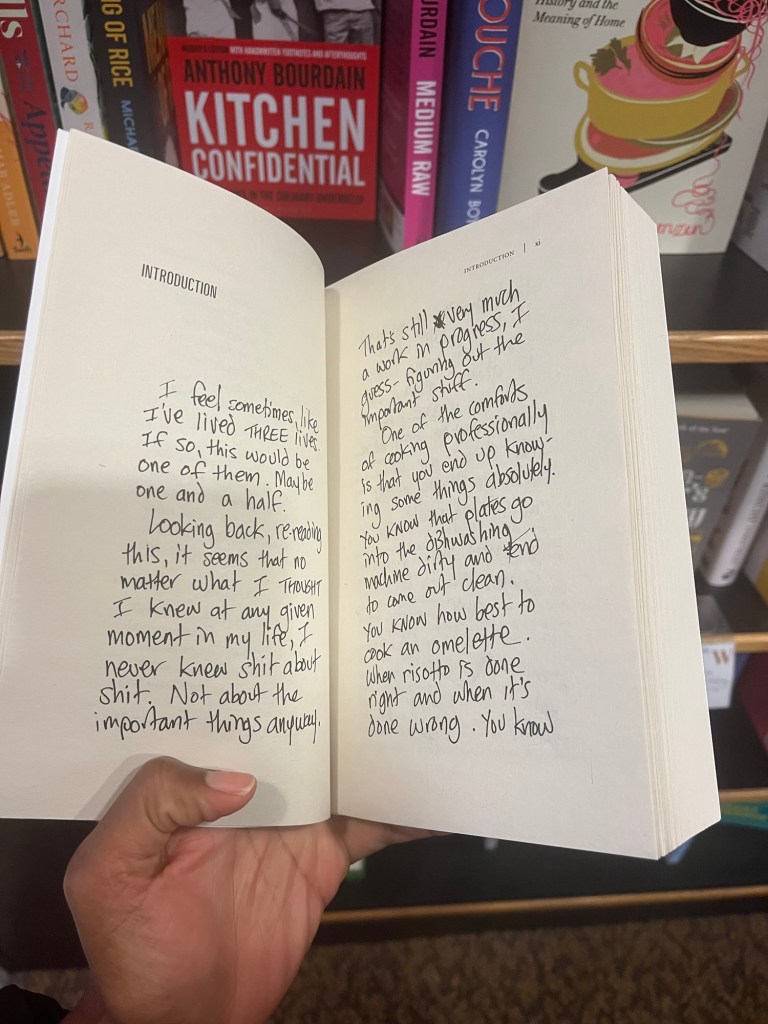 lls
Appe
MAR ADLER
RCHARD
R
NG OF RICE
MICHA
WITH HANDWRITTEN FOOTNOTES AND AFTERTHOUGHTS
ANTHONY BOURDAIN
KITCHEN
CONFIDENTIAL
IN THE CULINARY UNDERBELLY
URDAIN
MEDIUM RAW
OUCHE
CAROLYN BO
History and the
Meaning of Home
mzen
INTRODUCTION
I feel sometimes, like
I've lived THREE lives.
If so, this would be
one of them. Maybe
one and a half.
Looking back, re-reading
this, it seems that no
matter what I THOUGHT
I knew at any given
moment in my life, I
never knew shit about
shit. Not about the
important things anyway.
INTRODUCTION | xi
That's still very much
a work in progress, I
guess- figuring out the
important stuff.
One of the comforts
of cooking professionally
is that you end up know-
ing some things absolutely.
You know that plates go
into the dishwashing
machine dirty and tend
to come out clean.
You know how best to
cook an omelette.
When risotto is done
right and when it's
done wrong. You know
W